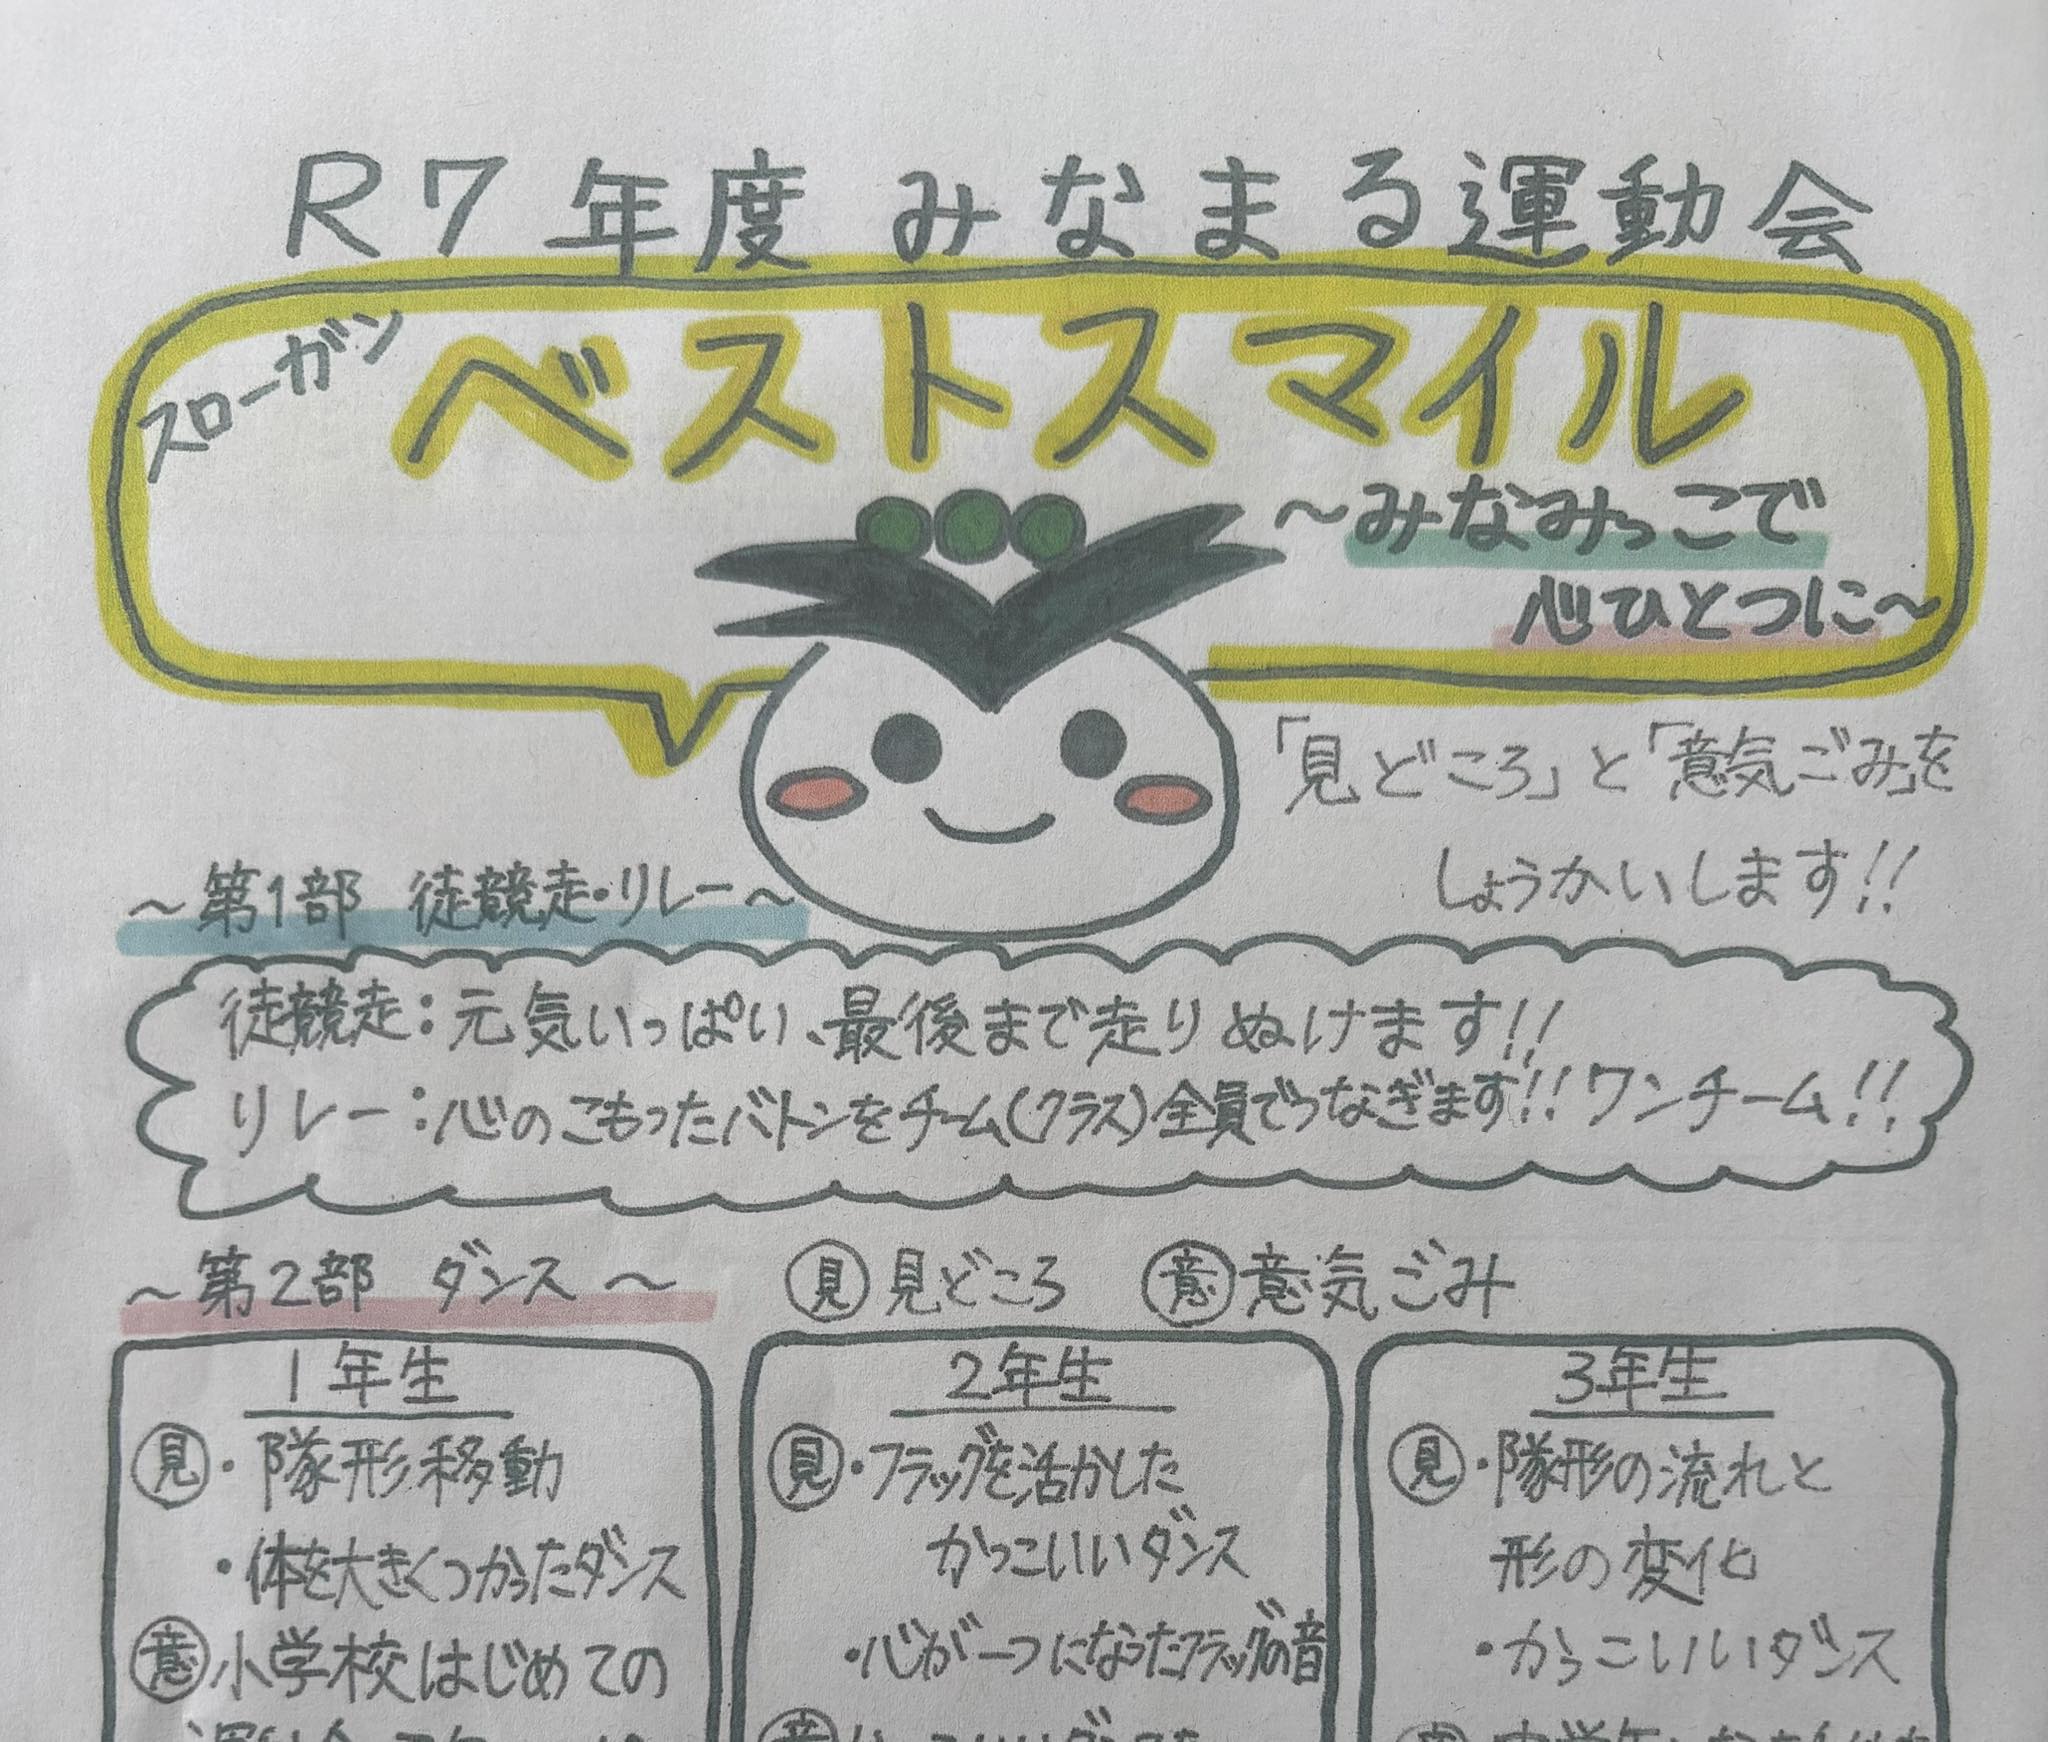 R7年度 みなまる運動会
スローガン
ベストスマイル
～みなみっこで
心ひとつに～
「見どころ」と「意気ごみ」を
しょうかいします!!
～第1部 徒競走・リレー～
徒競走：元気いっぱい、最後まで走りぬけます!!
リレー：心のこもったバトンをチーム(クラス)全員でつなぎます!!ワンチーム!!
～第2部 ダンス～
見 見どころ 意 意気ごみ
1年生
見・隊形移動
・体を大きくつかったダンス
意 小学校はじめての
2年生
見・フラッグを活かした
かっこいいダンス
・心が一つになったフラッグの音
3年生
見・隊形の流れと
形の変化
・かっこいいダンス